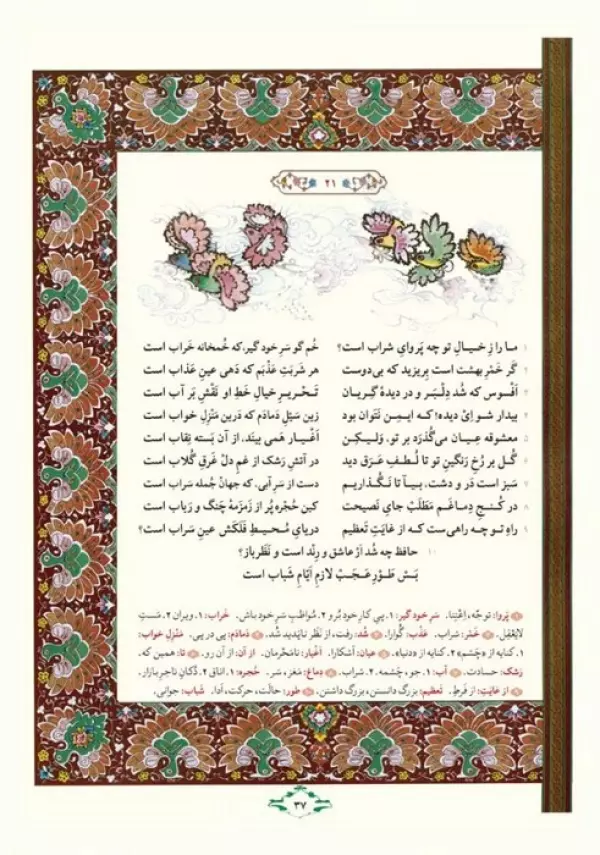 ۲۱
۱ ما را ز خیالِ تو چه پَروایِ شراب است؟ خُم گو سَرِ خود گیر، که خُمخانه خَراب است
۲ گَر خَمْرِ بهشت است بِریزید که بی‌دوست هر شَربَتِ عَذْبَم که دَهی عینِ عَذاب است
۳ اَفْسوس که شُد دِلْبَر و در دیدهٔ گِریان تَحْریرِ خیالِ خَطِ او نَقْشِ بَر آب است
۴ بیدار شو اِیْ دیده! که ایمِن نَتَوان بود زین سَیْلِ دَمادَم که دَرین مَنْزِلِ خواب است
۵ معشوقه عِیان می‌گُذَرد بر تو، وَلیکِن اَغْیار هَمی بینَد، از آن بَسته نِقاب است
۶ گُل بر رُخِ رَنگینِ تو تا لُطفِ عَرَق دید در آتشِ رَشک از غمِ دل غَرقِ گُلاب است
۷ سَبز است دَر و دشت، بیا تا نَگُذاریم دست از سَرِ آبی، که جهانْ جُمله سَراب است
۸ در کُنجِ دِماغَم مَطَلَبْ جایِ نَصیحت کین حُجْره پُر از زَمزَمهٔ چَنگ و رَباب است
۹ راهِ تو چه راهی‌ست که از غایَتِ تَعظیم دریایِ مُحیطِ فَلَکَش عینِ سَراب است؟
۱۰ حافظ چه شُد اَرْ عاشق و رِنْد است و نَظَرباز؟
بَسْ طَوْرِ عَجَبْ لازمِ اَیّامِ شَباب است
۱ پَروا: توجّه، اِعْتِنا. سَرِ خود گیر: ۱. پیِ کارِ خود بُرو ۲. مُواظبِ سَرِ خود باش. خَراب: ۱. ویران ۲. مَستِ
لایَعْقِل. ۲ خَمْر: شراب. عَذْب: گُوارا. ۳ شُد: رفت، از نَظَر ناپدید شُد. ۴ دَمادَم: پی در پی. مَنْزِلِ خواب:
۱. کنایه از «چشم» ۲. کنایه از «دنیا». ۵ عیان: آشکارا. اَغْیار: نامَحْرمان. از آن: از آن رو. ۶ تا: همین که.
رَشک: حسادت. ۷ آب: ۱. جو، چشمه. ۲. شراب. ۸ دِماغ: مَغز، سَر. حُجره: ۱. اتاق ۲. دُکانِ تاجرِ بازار.
۹ از غایَتِ: از فَرطِ. تَعظیم: بزرگ دانستن، بزرگ داشتن. ۱۰ طَور: حالَت، حرکت، اَدا. شَباب: جوانی.
۳۷